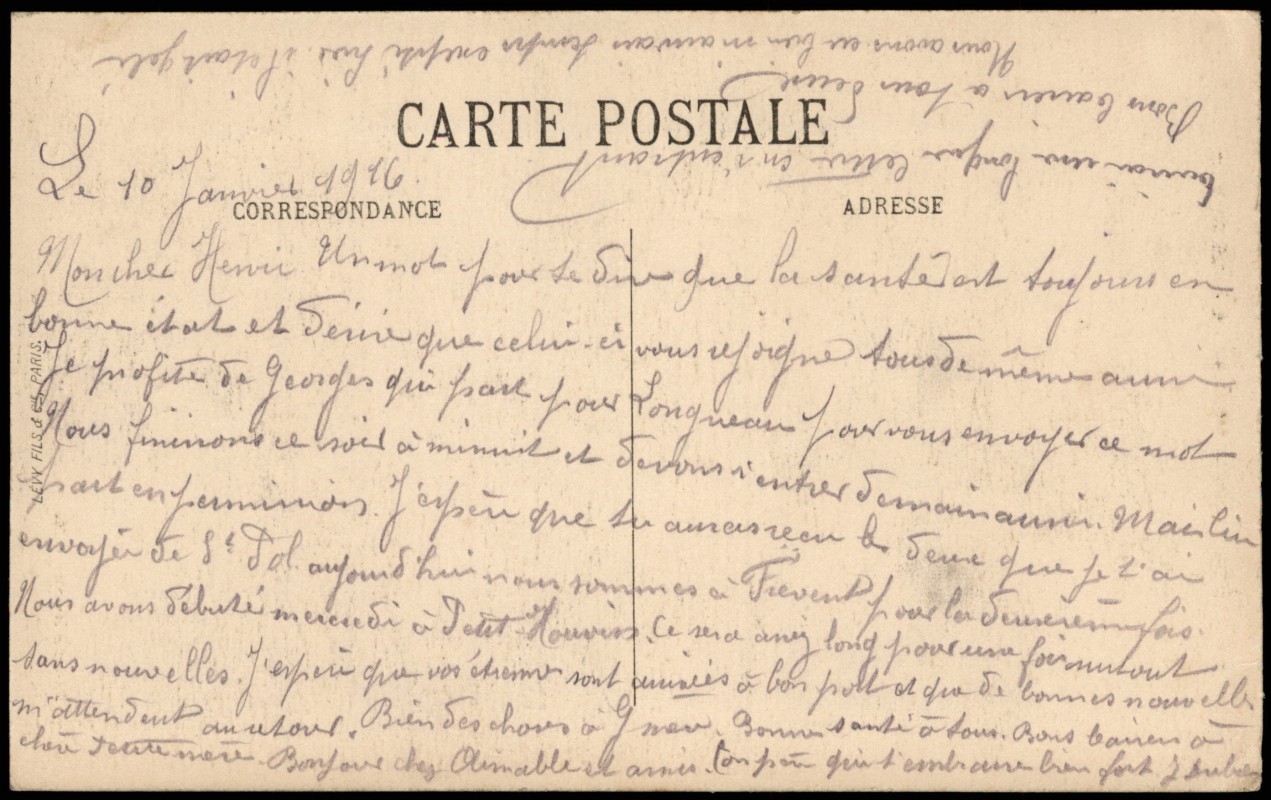 CARTE POSTALE
Le 10 Janvier 1916
CORRESPONDANCE
ADRESSE
Mon cher Henri Un mot pour te dire que la santé est toujours en
bonne état et désire que celui-ci vous rejoigne tous de même aussi
Je profite de Georges qui part pour Longueau pour vous envoyer ce mot
Nous finissons ce soir à minuit et devons rentrer demain aussi. Mais lui
part en permission. J'espère que tu auras reçu les deux que je t'ai
envoyer de St Pol. aujourd'hui nous sommes à Frévent pour la deuxième fois.
Nous avons débuté mercredi à Petit-Houvin. Ce sera assez long pour une fois surtout
sans nouvelles. J'espère que vos étrennes sont arrivées à bon port et que de bonnes nouvelles
m'attendent au retour. Bien des choses à Gmère. Bonne santé à tous. Bons baisers à
chère Petite mère. Bonjour chez Aimable et amis. Ton père qui t'embrasse bien fort
une longue lettre en rentrant
Bons baisers à tous deux
Nous avons eu bien mauvais temps excepté hier il était gelé
LEVY FILS & Cie, PARIS.